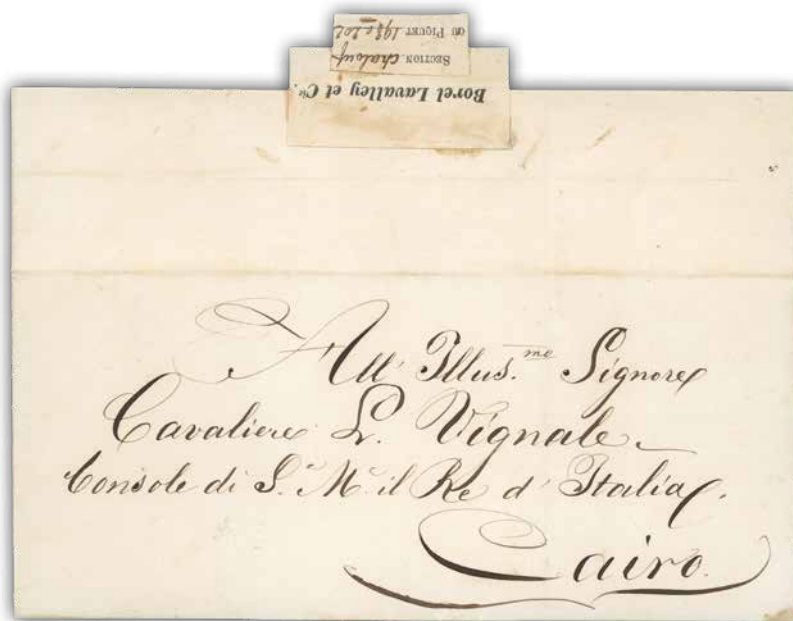 Borel Lavalley et Cie.
SECTION Chalouf
OU PIQUET 198 à 202
All' Illus.me Signore
Cavaliere L. Vignale
Console di S. M. il Re d' Italia.
Cairo.